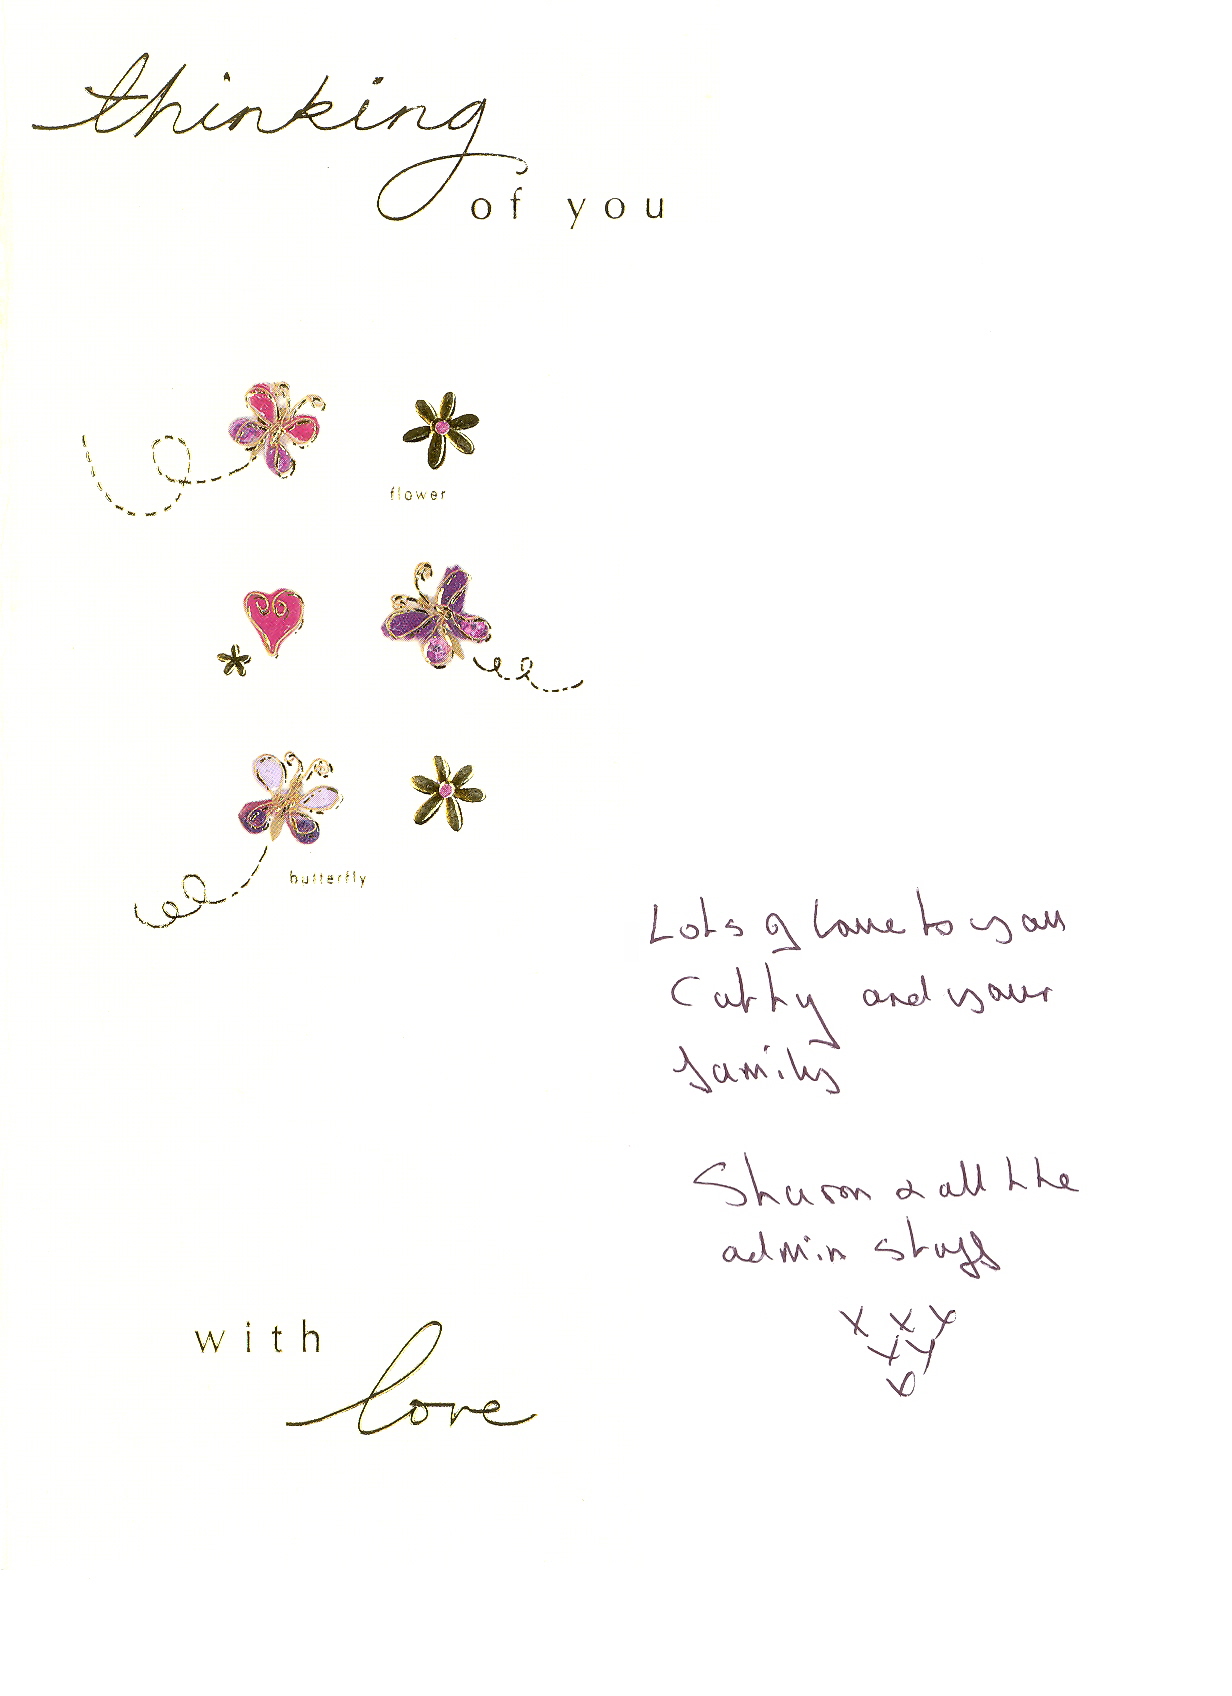 thinking
of you
flower
butterfly
Lots of love to you
Cathy and your
family
Sharon & all the
admin staff
x x x
x x
x
with
love